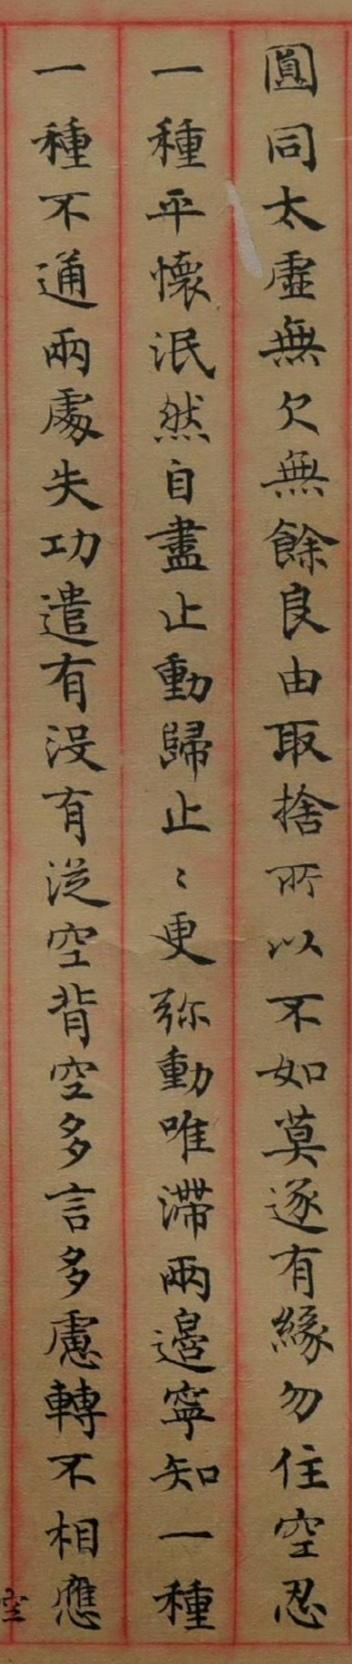 圓同太虛無欠無餘良由取捨所以不如莫逐有緣勿住空忍
一種平懷泯然自盡止動歸止〻更弥動唯滯兩邊寧知一種
一種不通兩處失功遣有沒有從空背空多言多慮轉不相應
空